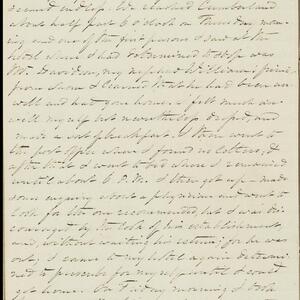 seemed endless. We reached Cumberland
about half past 6 o'clock on Thursday morn-
ing and one of the first persons I saw at the
hotel where I had determined to stop was
Mr. Davidson, my nephew William's friend,
from whom I learned that he had been un-
well and had gone home. I felt much un-
well myself but nevertheless and
made a breakfast. I then went to
the post office where I found no letters; &
after that I went to bed where I remained
until about 6 P.M. I then got up - made
some enquiry about a physician and went to
look for the one recommended, but I was dis-
couraged by the look of his establishment
and, without waiting his return, for he was
out, I came to my hotel again determin-
ed to prescribe for myself until I could
get home. On Friday morning I took